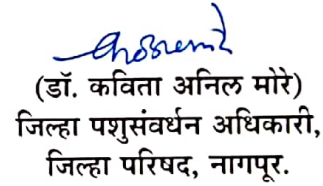 (डॉ. कविता अनिल मोरे)
जिल्हा पशुसंवर्धन अधिकारी,
जिल्हा परिषद, नागपूर.